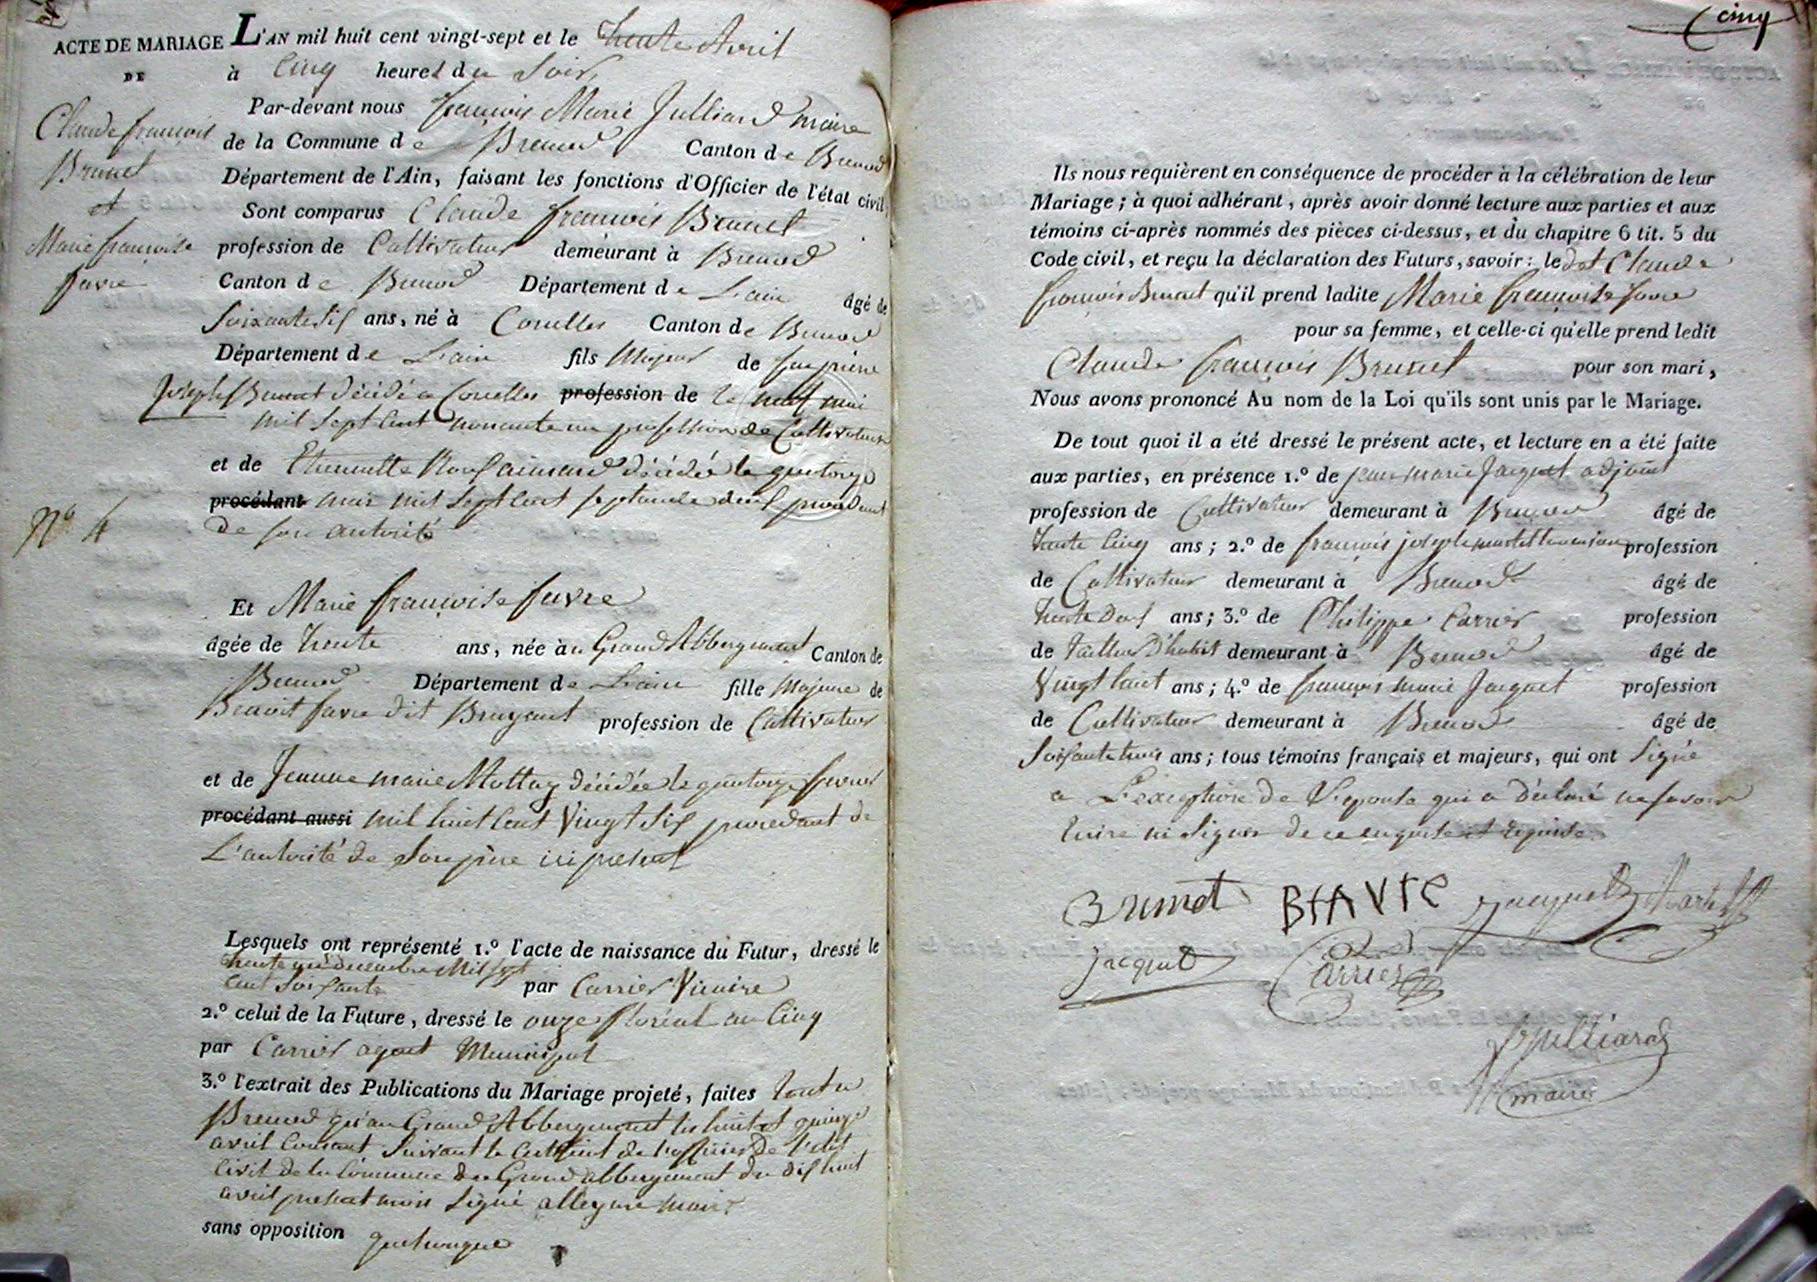 ACTE DE MARIAGE
DE
Claude françois
Brunet
et
Marie françoise
favre
Nº 4
L'AN mil huit cent vingt-sept et le trente Avril
à Cinq heures du Soir,
Par-devant nous françois Marie Julliard maire
de la Commune de Brenod Canton de Brenod
Département de l'Ain, faisant les fonctions d'Officier de l'état civil,
Sont comparus Claude françois Brunet
profession de Cultivateur demeurant à Brenod
Canton de Brenod Département de L'ain âgé de
Soixante Six ans, né à Corcelles Canton de Brenod
Département de L'ain fils Majeur de feu
Joseph Brunet décédé a Corcelles profession de le neuf mai
mil Sept Cent nonante un profession de Cultivateur
et de décédée le quatorze
procédant mars mil Sept Cent Septante deux procédant
de son autorité
Et Marie françoise favre
âgée de trente ans, née au Grand Abbergement Canton de
Brenod Département de L'ain fille Majeure de
Benoit favre dit Bruyant profession de Cultivateur
et de Jeanne marie Mottaz décédée le quatorze fevrier
procédant aussi mil huit Cent Vingt Six procédant de
L'autorité de Son père ici présent
Lesquels ont représenté 1.º l'acte de naissance du Futur, dressé le
trente un decembre Mil Sept
cent Soixante par Carrier Vicaire
2.º celui de la Future, dressé le onze floréal an Cinq
par Carrier agent Municipal
3.º l'extrait des Publications du Mariage projeté, faites tant a
Brenod qu'au Grand Abbergement les huit et quinze
avril Courant Suivant le Certificat de l'officier de l'etat
Civil de la Commune du Grand abbergement du dix huit
avril présent mois Signé maire
sans opposition quelconque
cinq
Ils nous requièrent en conséquence de procéder à la célébration de leur
Mariage ; à quoi adhérant, après avoir donné lecture aux parties et aux
témoins ci-après nommés des pièces ci-dessus, et du chapitre 6 tit. 5 du
Code civil, et reçu la déclaration des Futurs, savoir: le dit Claude
françois Brunet qu'il prend ladite Marie françoise favre
pour sa femme, et celle-ci qu'elle prend ledit
Claude françois Brunet pour son mari,
Nous avons prononcé Au nom de la Loi qu'ils sont unis par le Mariage.
De tout quoi il a été dressé le présent acte, et lecture en a été faite
aux parties, en présence 1.º de jean marie Jacquet adjoint
profession de Cultivateur demeurant à Brenod âgé de
trente Cinq ans ; 2.º de françois joseph profession
de Cultivateur demeurant à Brenod âgé de
trente Deux ans ; 3.º de Philippe Carrier profession
de Tailleur D'habit demeurant à Brenod âgé de
Vingt huit ans ; 4.º de françois marie Jacquet profession
de Cultivateur demeurant à Brenod âgé de
Soixante trois ans ; tous témoins français et majeurs, qui ont Signé
a L'exception de l'epouse qui a déclaré ne savoir
Ecrire ni Signer de ce enquise et requise
Brunet BfAVrE Jacquet
Jacquet Carrier
Julliard
maire